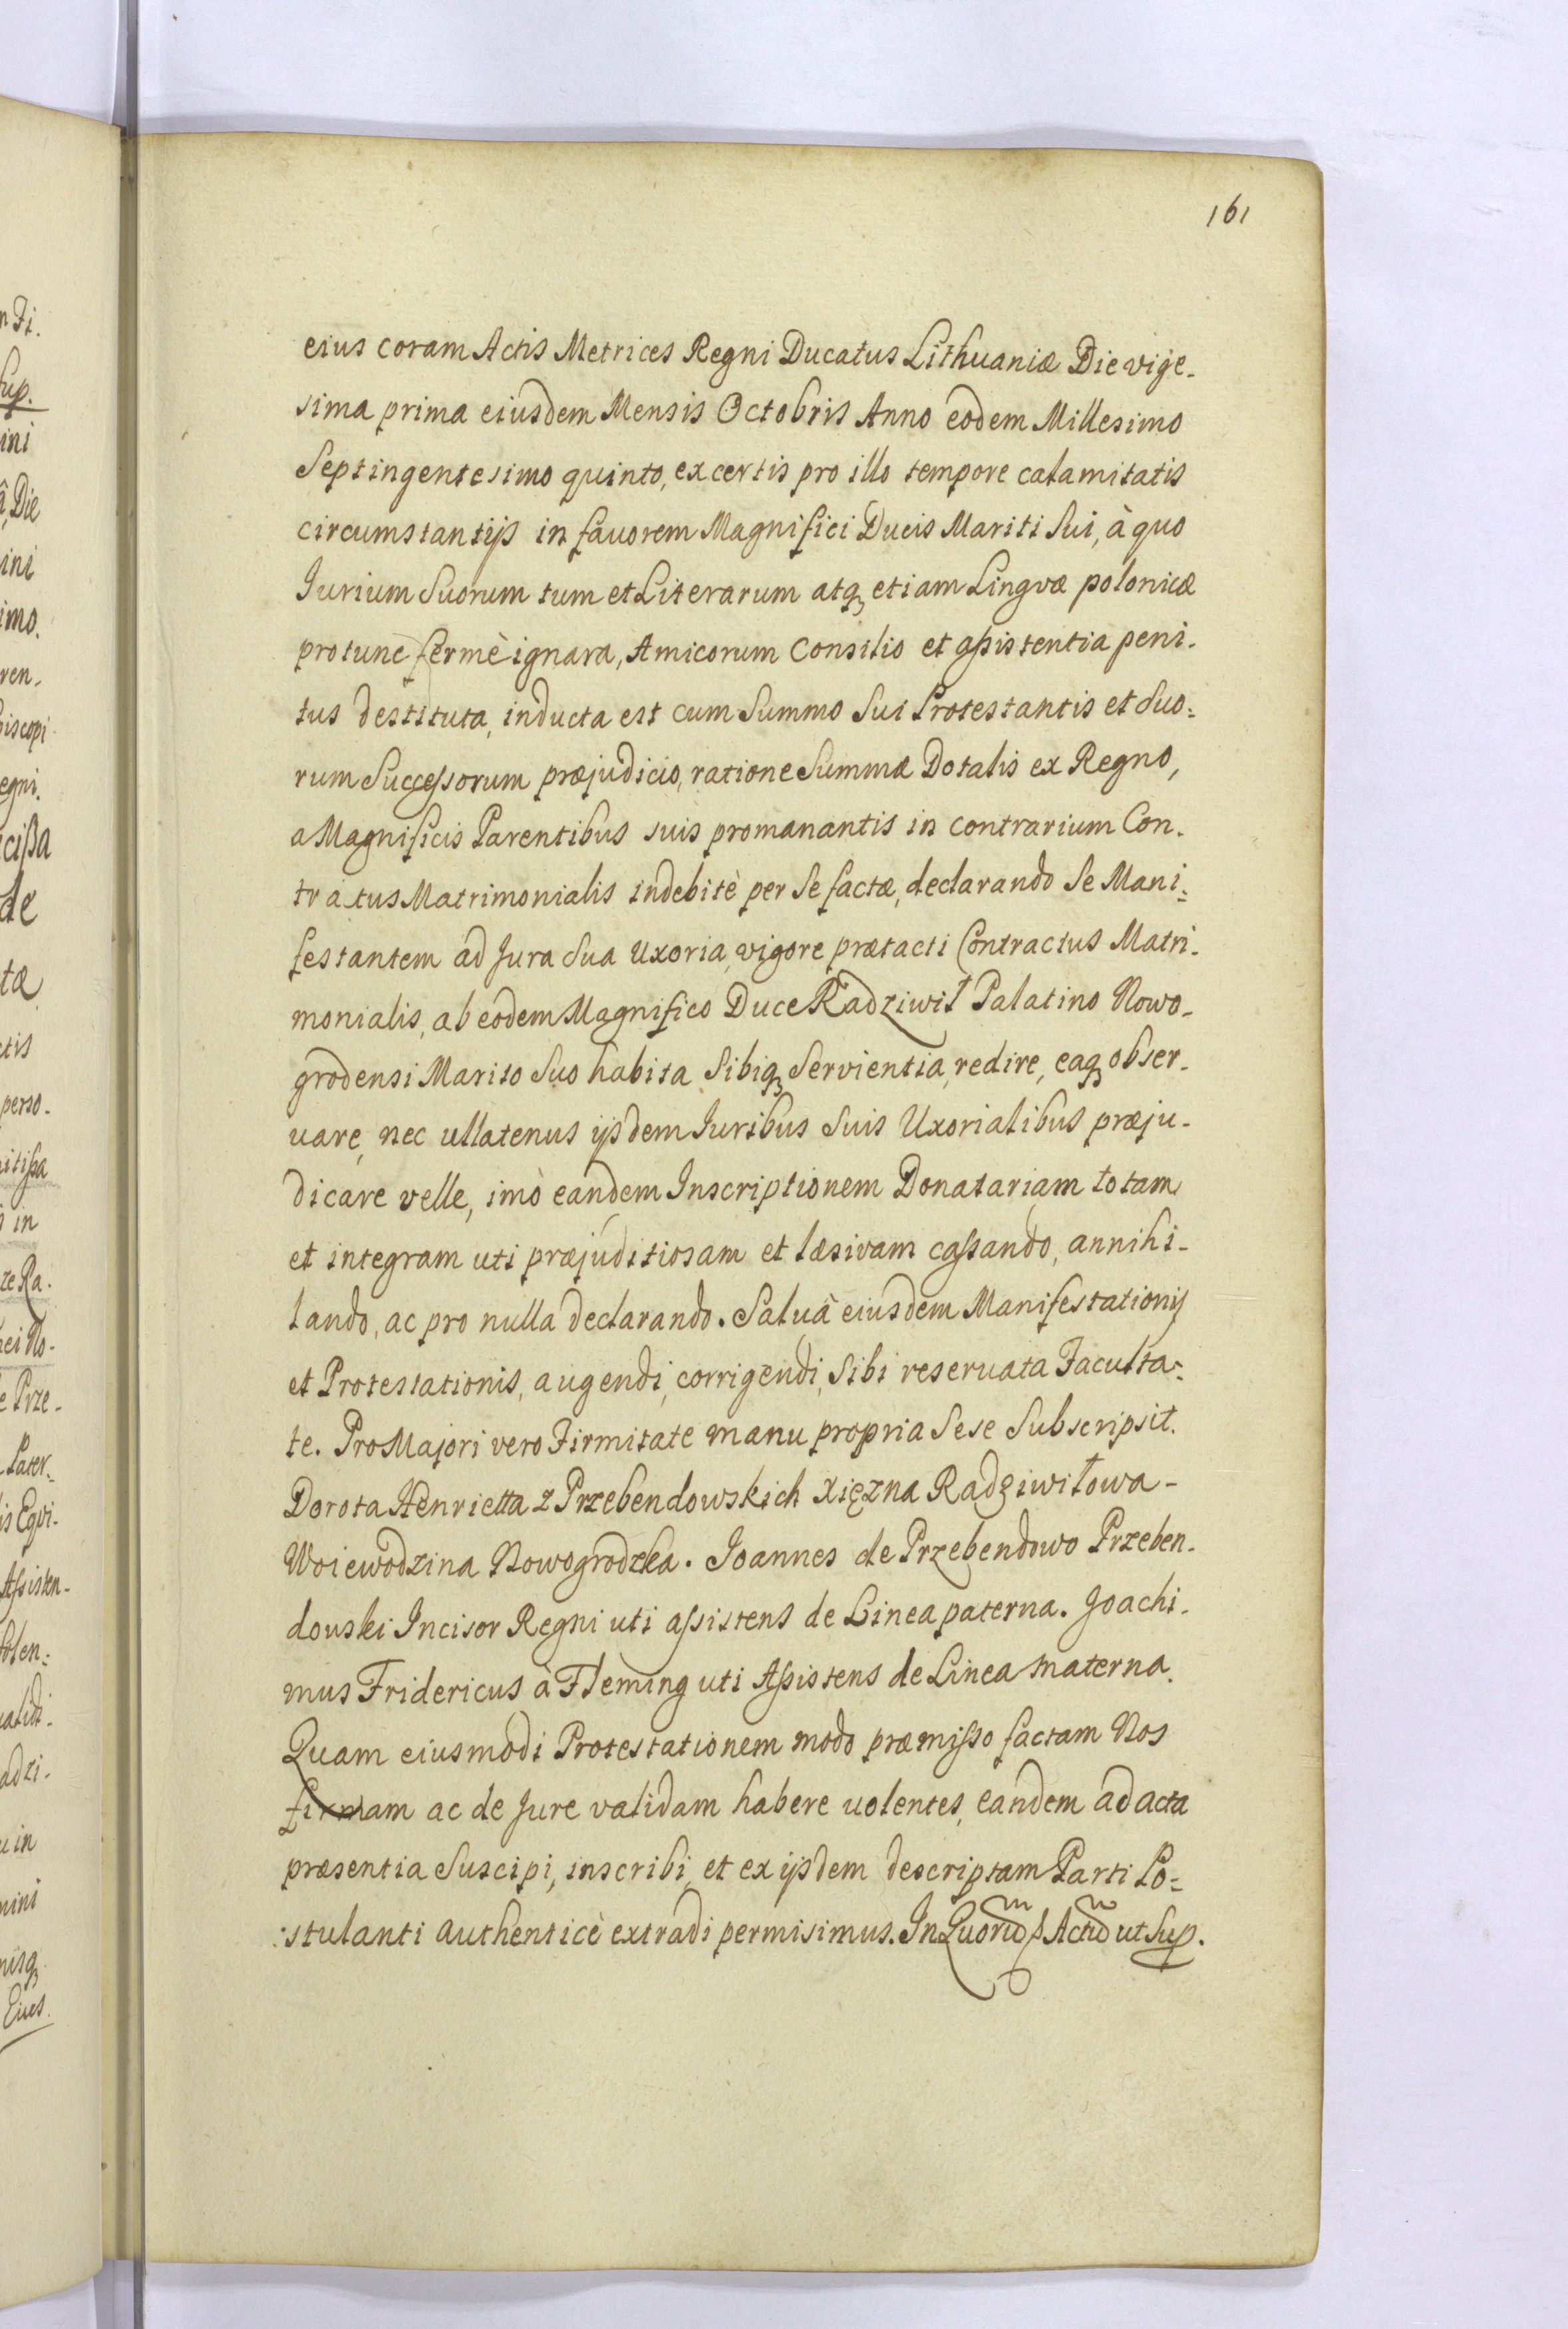 161
eius coram Actis Metrices Regni Ducatus Lithuaniæ Die vige-
sima prima eiusdem Mensis Octobris Anno eodem Millesimo
Septingentesimo quinto, ex certis pro illo tempore calamitatis
circumstantijs in fauorem Magnifici Ducis Mariti Sui, à quo
Jurium Suorum tum et Literarum atq; etiam Lingvæ polonicæ
protunc fermè ignara, Amicorum Consilio et assistentia peni-
tus destituta, inducta est cum Summo Sui Protestantis et Suo=
rum Successorum præjudicio, ratione Summæ Dotalis ex Regno,
a Magnificis Parentibus suis promanantis in contrarium Con-
tratus Matrimonialis indebitè per Se factæ, declarando Se Mani=
festantem ad Jura Sua Uxoria, vigore prætacti Contractus Matri-
monialis, ab eodem Magnifico Duce Radziwił Palatino Nowo-
grodensi Marito Suo habita Sibiq; Servientia, redire, eaq; obser-
uare, nec ullatenus ijsdem Iuribus Suis Uxorialibus præju-
dicare velle, imò eandem Inscriptionem Donatariam totam
et integram uti præjuditiosam et læsivam cassando, annihi-
lando, ac pro nulla declarando. Saluâ eiusdem Manifestationis
et Protestationis, augendi, corrigendi, Sibi reseruata Faculta-
te. Pro Majori vero Firmitate manu propria Sese Subscripsit.
Dorota Henrietta z Przebendowskich Xięzna Radziwiłowa-
Woiewodzina Nowogrodzka. Joannes de Przebendowo Przeben-
douski Incisor Regni uti assistens de Linea paterna. Joachi-
mus Fridericus à Fleming uti Assistens de Linea materna.
Quam eiusmodi Protestationem modo præmisso factam Nos
firmam ac de Jure validam habere uolentes, eandem ad acta
præsentia Suscipi, inscribi, et ex ijsdem descriptam Parti Po=
:stulanti authenticè extradi permisimus. In Quorū Actū ut Sup.